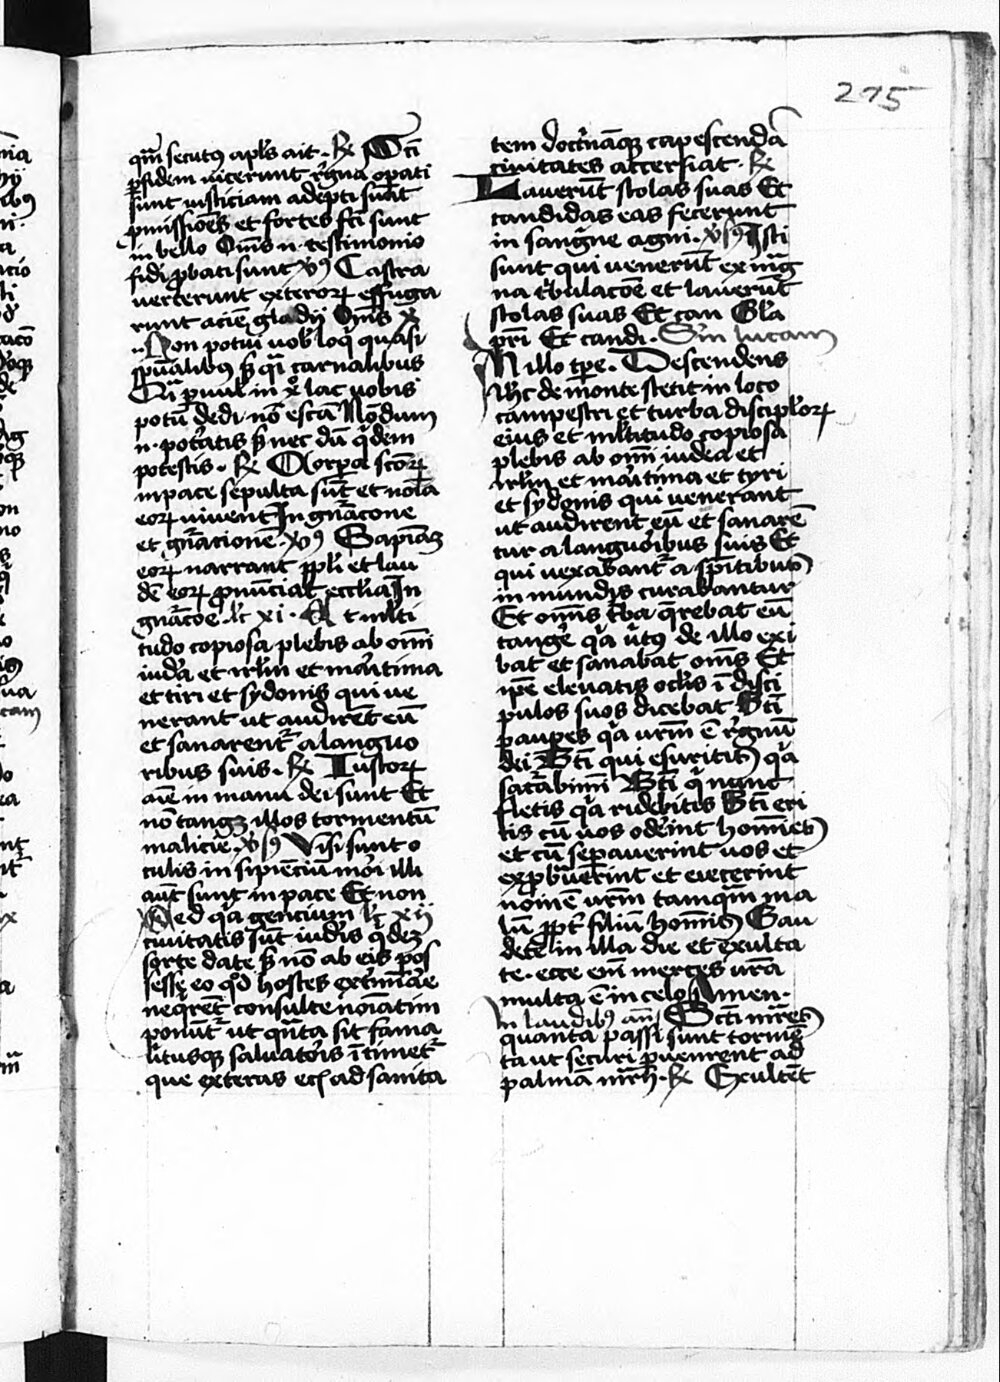 275
qm̄ secutꝰ apl's ait · ℟ Sc̄i
ꝑ fidem vicerunt r̄gna opati
sunt iusticiam adepti sunt
ꝓmissiōes et fortes fc̄i sunt
in bello Om̄s n̄ testimonio
fidi ꝓbati sunt v̾ꝰ Castra
verterunt exteroꝝ effuga
runt aciē gladij Om̄s x
Non potui vob̾ loq̄ quasi
sp̄ualibꝰ sꝫ q̄i carnalibus
ꝑuul' in xp̄o lac vobis
potū dedi nō escā Nōdum
n̄ pot̾atis sꝫ nec dū q̄dem
potestis · ℟ Corpora sc̄oꝝ
in pace sepulta sūt et noīa
eoꝝ vivent In gn̄acione
et gn̄acione v̾ꝰ Sapiām
eoꝝ narrant ppl'i et lau
dē eoꝝ ꝓnūciat eccl'ia In
gn̄acōe lc̄ xi · Et ml'ti
tudo copiosa plebis ab om̄i
iudea et irl'm et mar̄itima
et tiri et sydonis qui ve
nerant ut audirēt eū
et sanarent᷑ a languo
ribus suis · ℟ Iustoꝝ
aīe in manu dei sunt Et
nō tangꝫ illos tormentū
malicie v̾sꝰ Visi sunt o
culis insipienciū mori illi
aūt sunt in pace Et non
Sed q̄a gencium lc̄ xij
civitatis sūt iud̾is q̄deꝫ
sorte date sꝫ nō ab eis pos
sesse eo qd̾ hostes ext̾minare
neq̄rēt consulte noīatim
ponūt᷑ ut qn̄ta sit fama
v̾tusqꝫ salvatoris ītimet᷑
que exteras eciā ad sanita
tem doctrināqꝫ capescendā
civitates accersiat · ℟
Laverūt stolas suas Et
candidas eas fecerunt
in sangv̄ne agni · v̾sꝰ Isti
sunt qui venerūt ex mag
na t̾bulacōe et laverūt
stolas suas Et can Gl'a
pr̄i Et candi · Sm̄ lucam
In illo tp̄e · Descendens
ih̄c de monte stetit in loco
campestri et turba discipl'oꝝ
eius et ml'titudo copiosa
plebis ab om̄i iudea et
irl'm et maritima et tyri
et sydonis qui venerant
ut audirent eū et sanarē
tur a languoribus suis Et
qui vexabant᷑ a sp̄itibus
inmundis curabantur
Et om̄is t̾ba q̄rebat eū
tang̾e q̄a v̾tꝰ de illo exi
bat et sanabat om̄s Et
ip̄e elevatis ocl'is ī disci
pulos suos dicebat Bt̄i
pauꝑes q̄a vr̄m ē r̄gnū
dei Bt̄i qui esuritis q̄a
saturabimī Bt̄i q̄ nunc
fletis q̄a ridebitis Bt̄i eri
tis cū vos oderint homīes
et cū seꝑaverint vos et
exꝓbraverint et eiecerint
nomē vr̄m tamqm̄ ma
lū ꝓpt̾ filiū hominis Gau
dete in illa die et exulta
te · ecce enī merces vr̄a
multa ē in celo Amen ·
In laudibꝰ an̄ Sc̄i mr̄es
quanta passi sunt tormē
ta ut securi ꝑvenirent ad
palmā mr̄ij · ℟ Exultēt